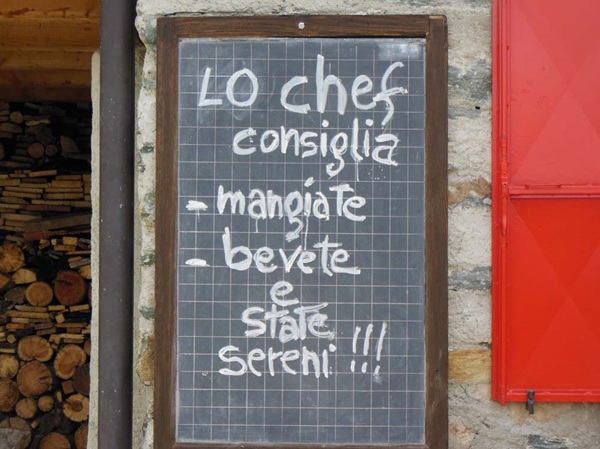 LO chef
consiglia
- mangiate
- bevete
e
state
sereni !!!